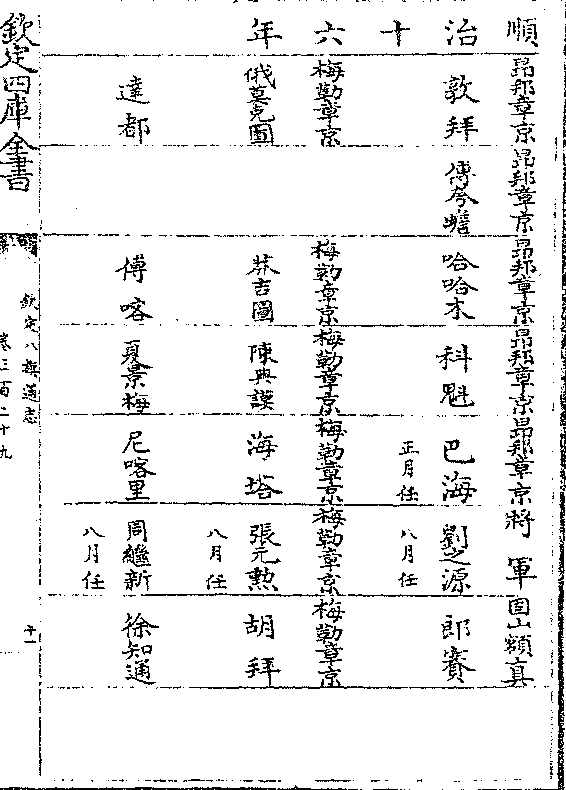 順 昂邦章京 昂邦章京 昂邦章京 昂邦章京 昂邦章京 將軍 固山額真
治 敦拜 傅夸蟾 哈哈木 科魁 巴海 劉之源 郎賽
十 正月任 八月任
六 梅勒章京 梅勒章京 梅勒章京 梅勒章京 梅勒章京 梅勒章京
年 俄莫克圖 莽吉圖 陳典謨 海塔 張元勲 胡拜
八月任
達都 傅喀 夏景梅 尼喀里 周繼新 徐知通
八月任
欽定四庫全書
欽定八旗通志
卷三百二十九
十一